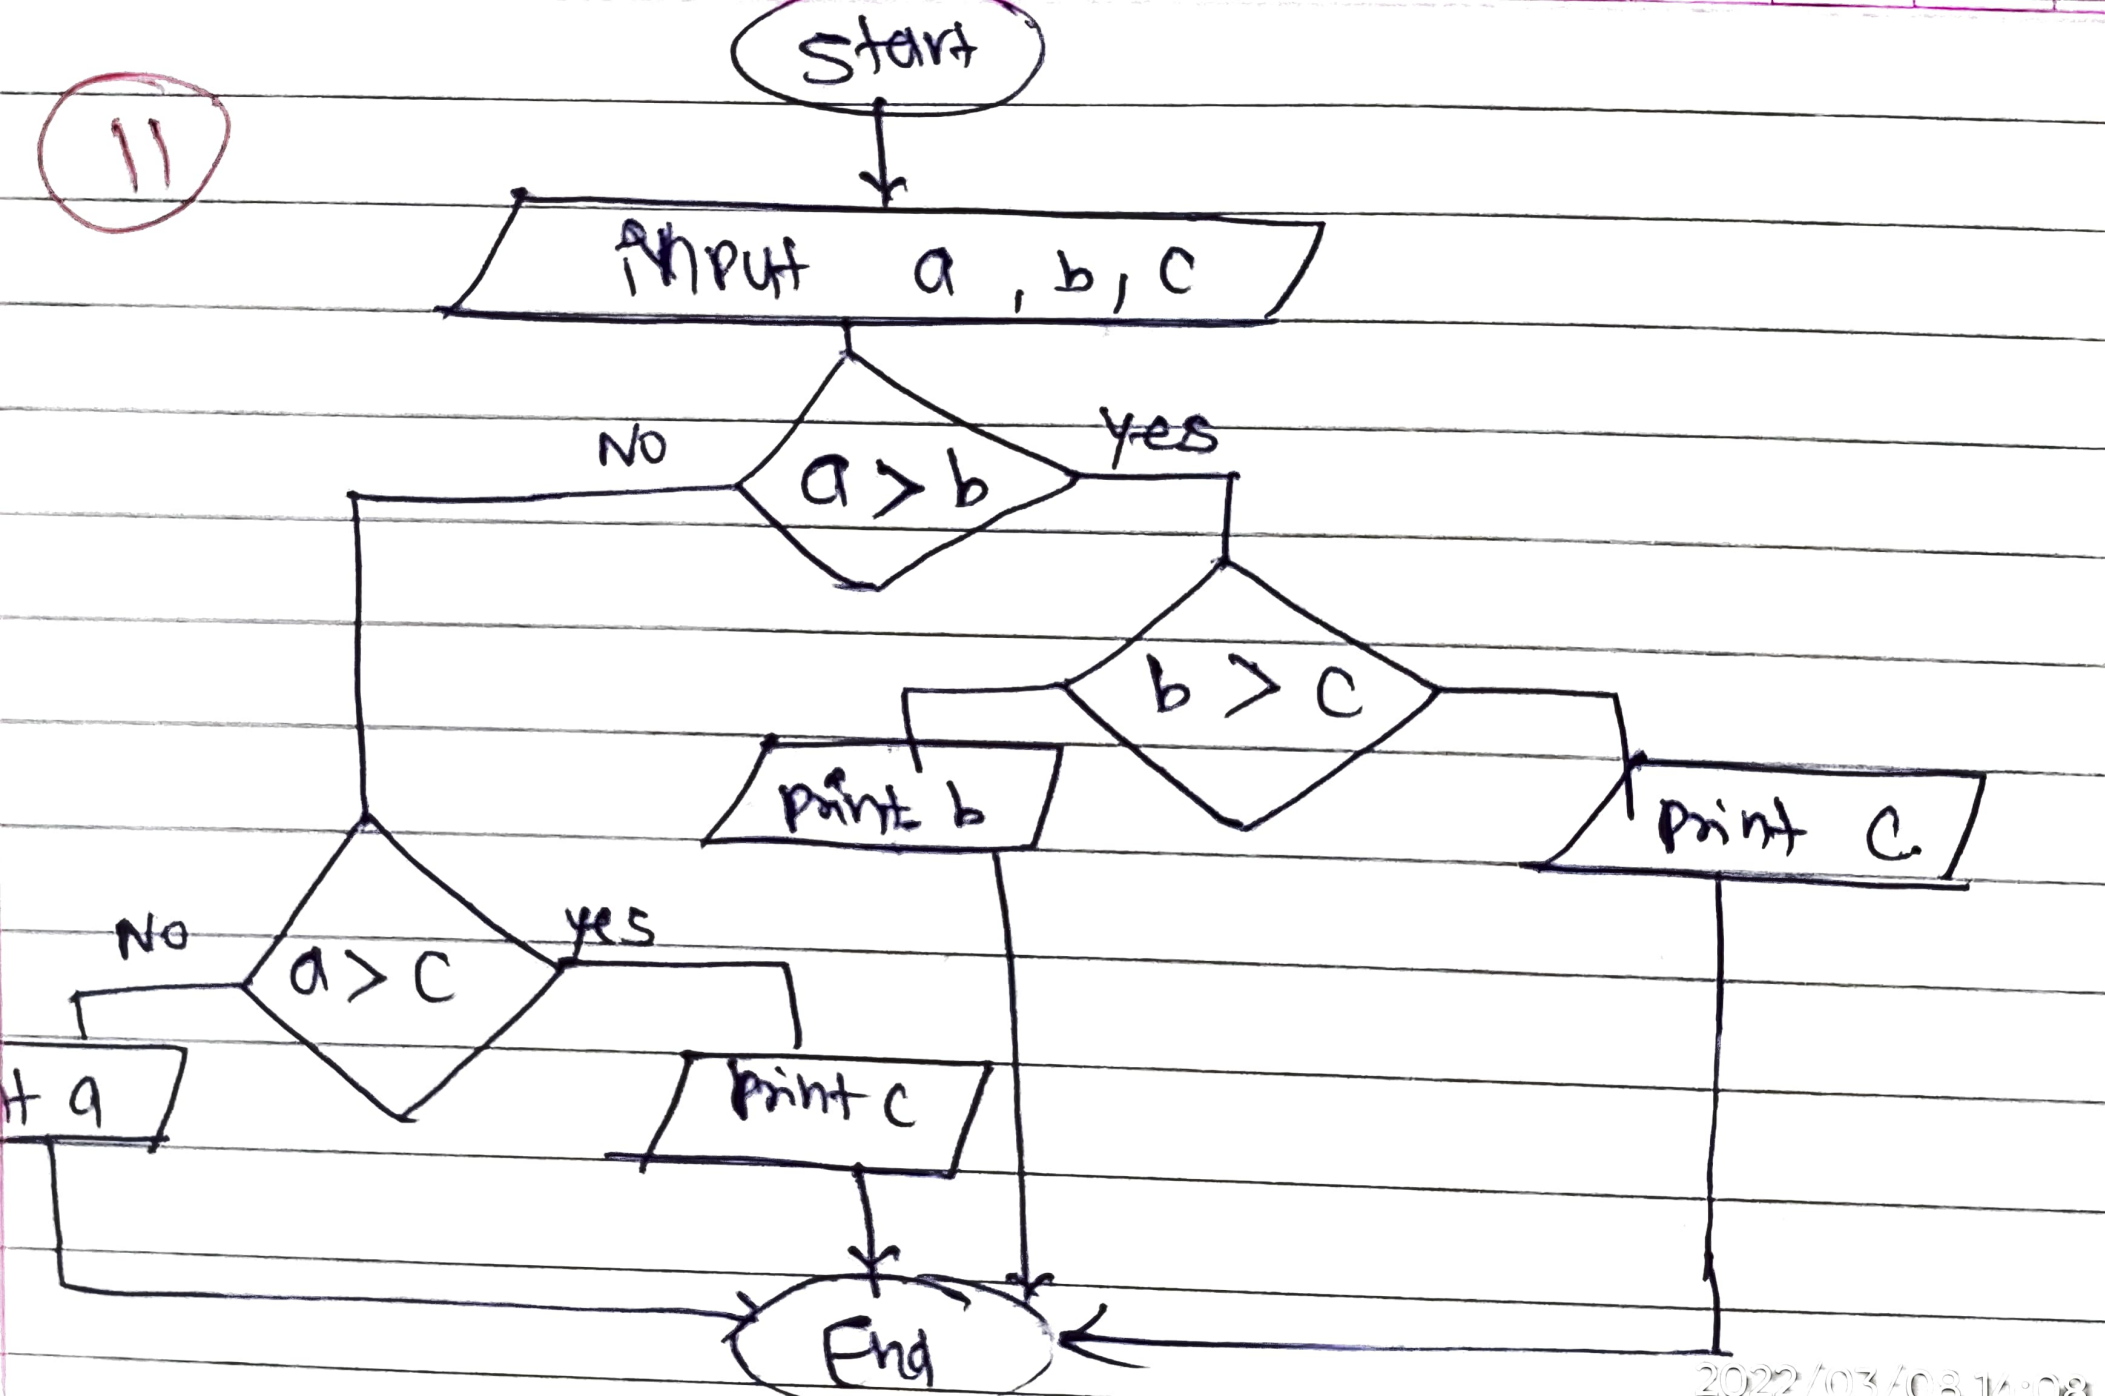 Start
11
input a, b, c
No
yes
a > b
b > c
print b
print c
No
yes
a > c
t a
print c
End
2022/03/08 14:08